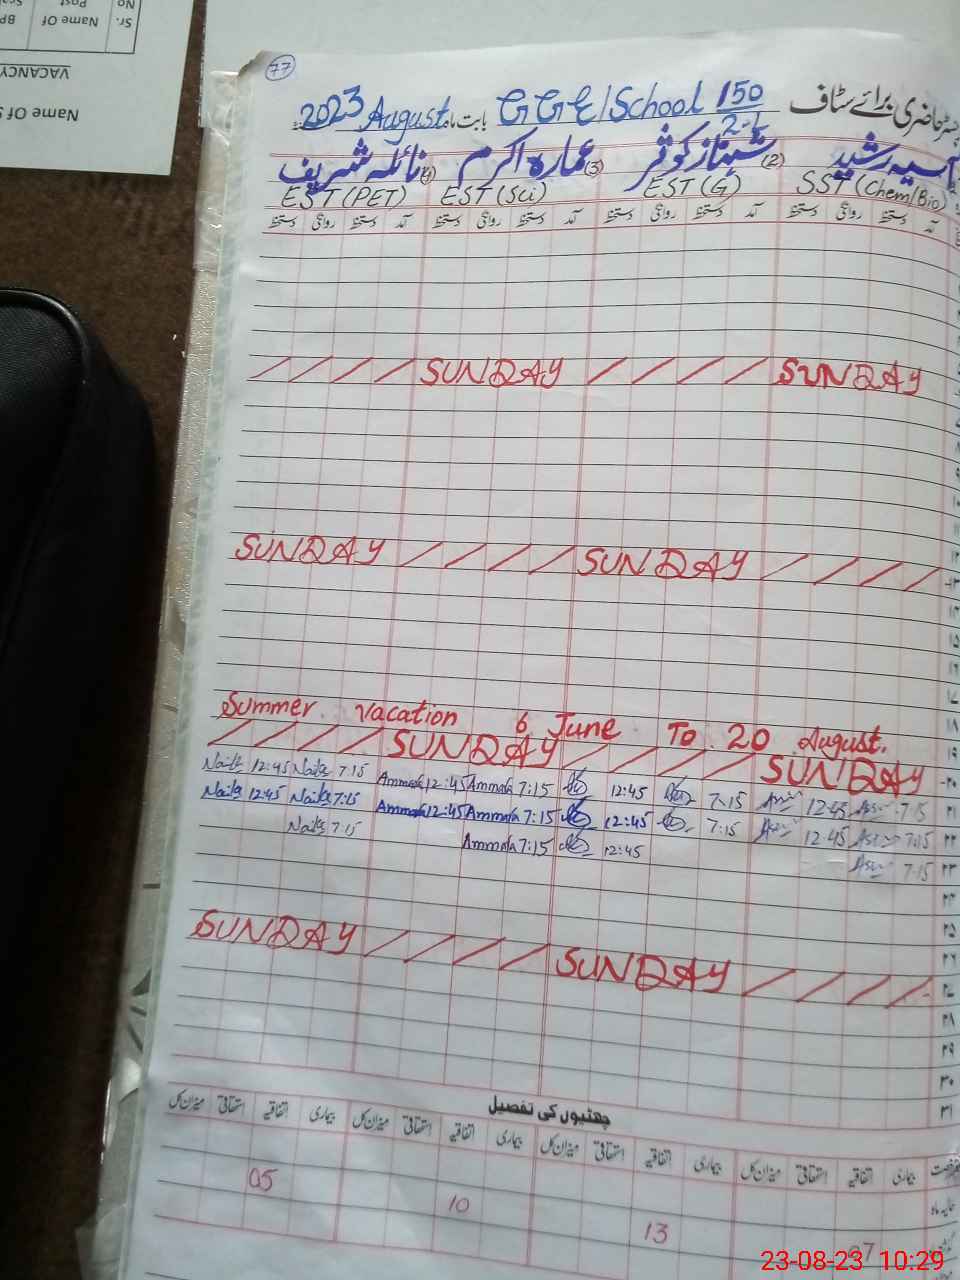 Name Of
VACANCY
Sr. No
Name Of Post
BP
77
رجسٹر حاضری برائے سٹاف
GGE/School 150
بابت ماہ August 2023
آسیہ رشید (2) شہناز کوثر (3) عمارہ اکرم (4) نائلہ شریف
SST (Chem/Bio) EST (G) EST (Sci) EST (PET)
آمد دستخط روانگی دستخط آمد دستخط روانگی دستخط آمد دستخط روانگی دستخط آمد دستخط روانگی دستخط
SUNDAY SUNDAY
SUNDAY SUNDAY
Summer vacation 6 June To 20 August.
SUNDAY SUNDAY
Naila 12:45 Naila 7:15 Ammara 12:45 Ammara 7:15 12:45 7:15 12:45 7:15 ۲۱
Naila 12:45 Naila 7:15 Ammara 12:45 Ammara 7:15 12:45 7:15 12:45 7:15 ۲۲
Naila 7:15 Ammara 7:15 12:45 7:15 ۲۳
۲۴
۲۵
SUNDAY SUNDAY
۲۸
۲۹
۳۰
۳۱
چھٹیوں کی تفصیل
بیماری اتفاقیہ استحقاقی میزان کل بیماری اتفاقیہ استحقاقی میزان کل بیماری اتفاقیہ استحقاقی میزان کل بیماری اتفاقیہ استحقاقی میزان کل
حالیہ ماہ
05 10 13 07
23-08-23 10:29